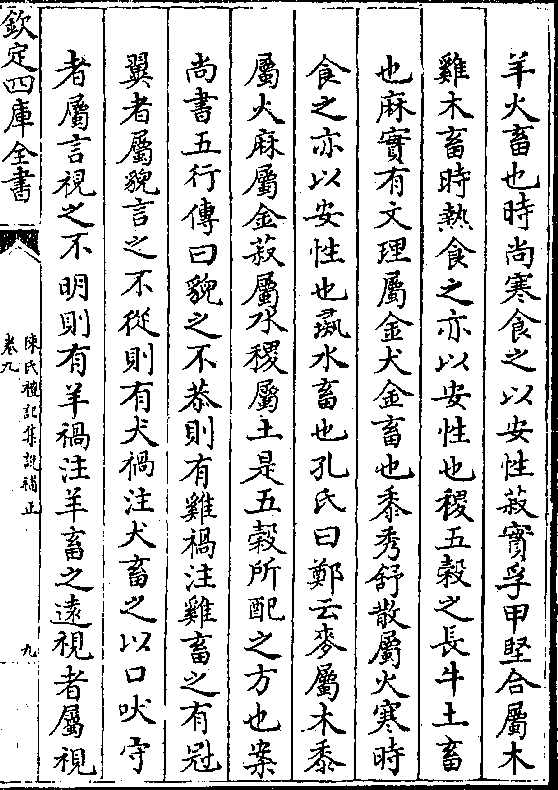 羊火畜也時尚寒食之以安性菽實孚甲堅合屬木
雞木畜時熱食之亦以安性也稷五穀之長牛土畜
也麻實有文理屬金犬金畜也黍秀舒散屬火寒時
食之亦以安性也彘水畜也孔氏曰鄭云麥屬木黍
屬火麻屬金菽屬水稷屬土是五穀所配之方也案
尚書五行傳曰貌之不恭則有雞禍注雞畜之有冠
翼者屬貌言之不從則有犬禍注犬畜之以口吠守
者屬言視之不明則有羊禍注羊畜之遠視者屬視
欽定四庫全書
陳氏禮記集說補正
卷九
九